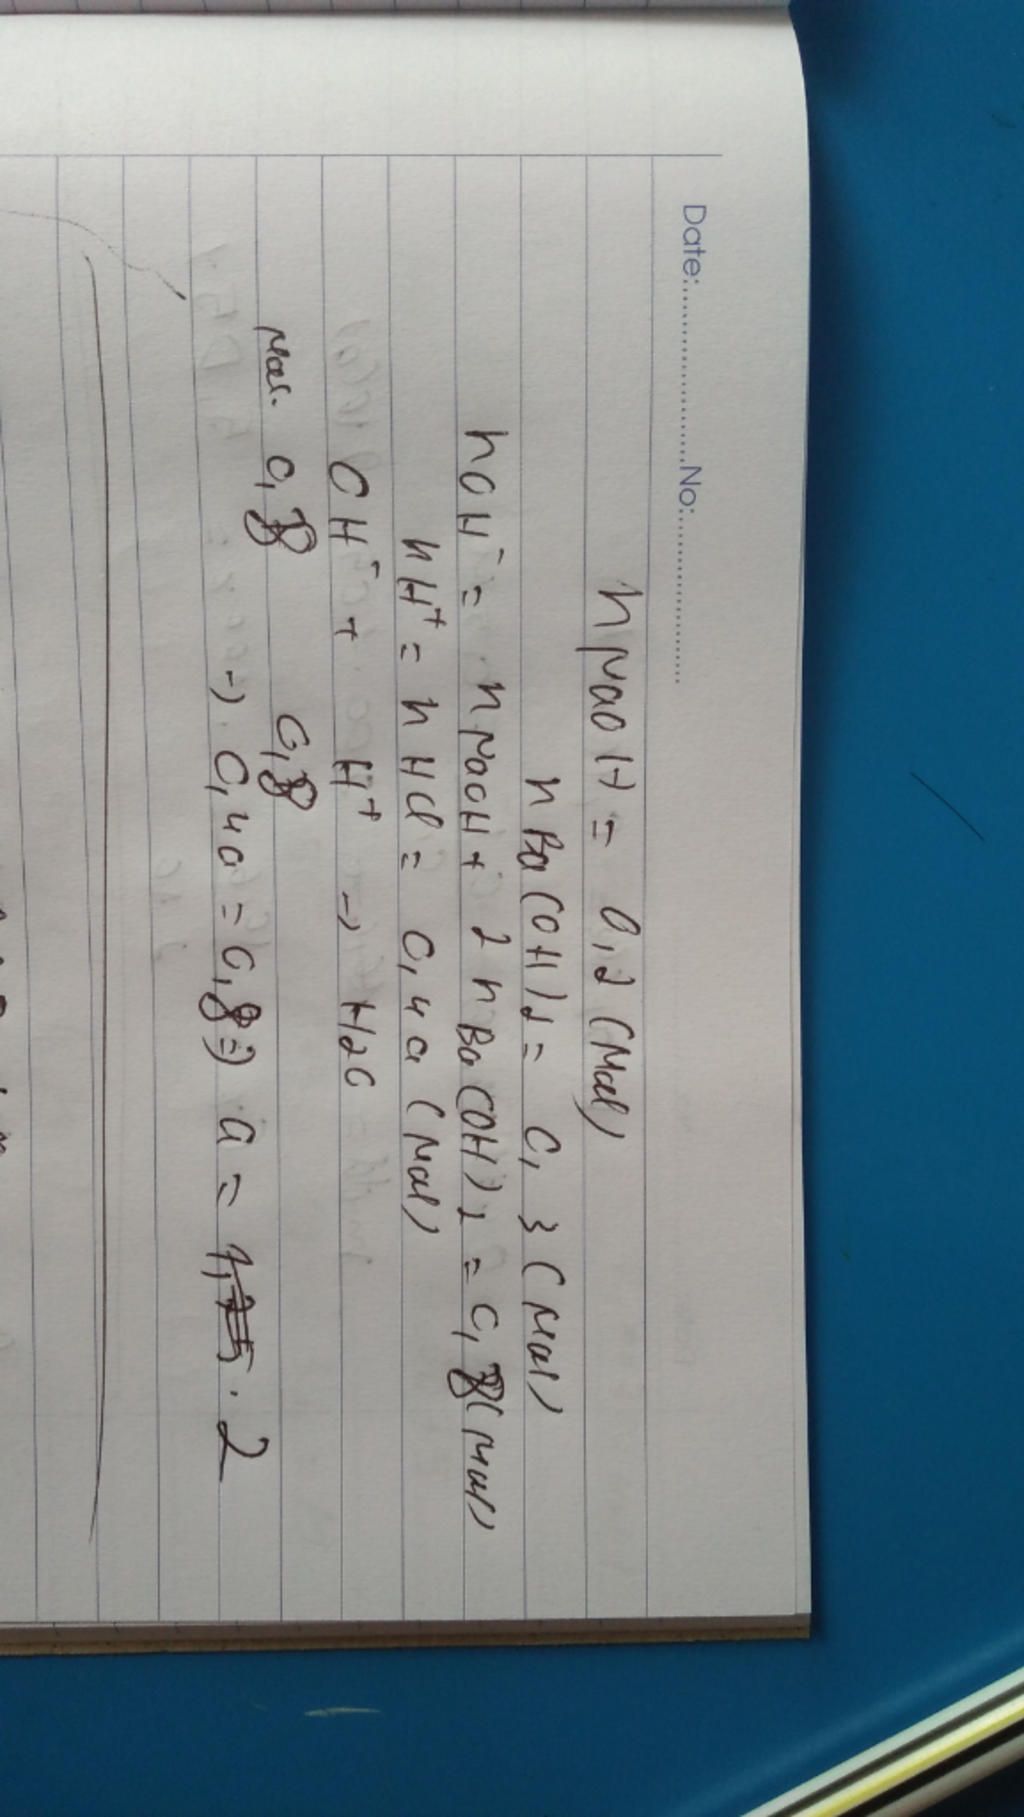 Date:....................No:....................
nNaOH = 0,2 (mol)
nBa(OH)2 = 0,3 (mol)
nOH⁻ = nNaOH + 2nBa(OH)2 = 0,8 (mol)
nH⁺ = nHCl = 0,4a (mol)
OH⁻ + H⁺ -> H2O
mol. 0,8 0,8
-> 0,4a = 0,8 => a = 2